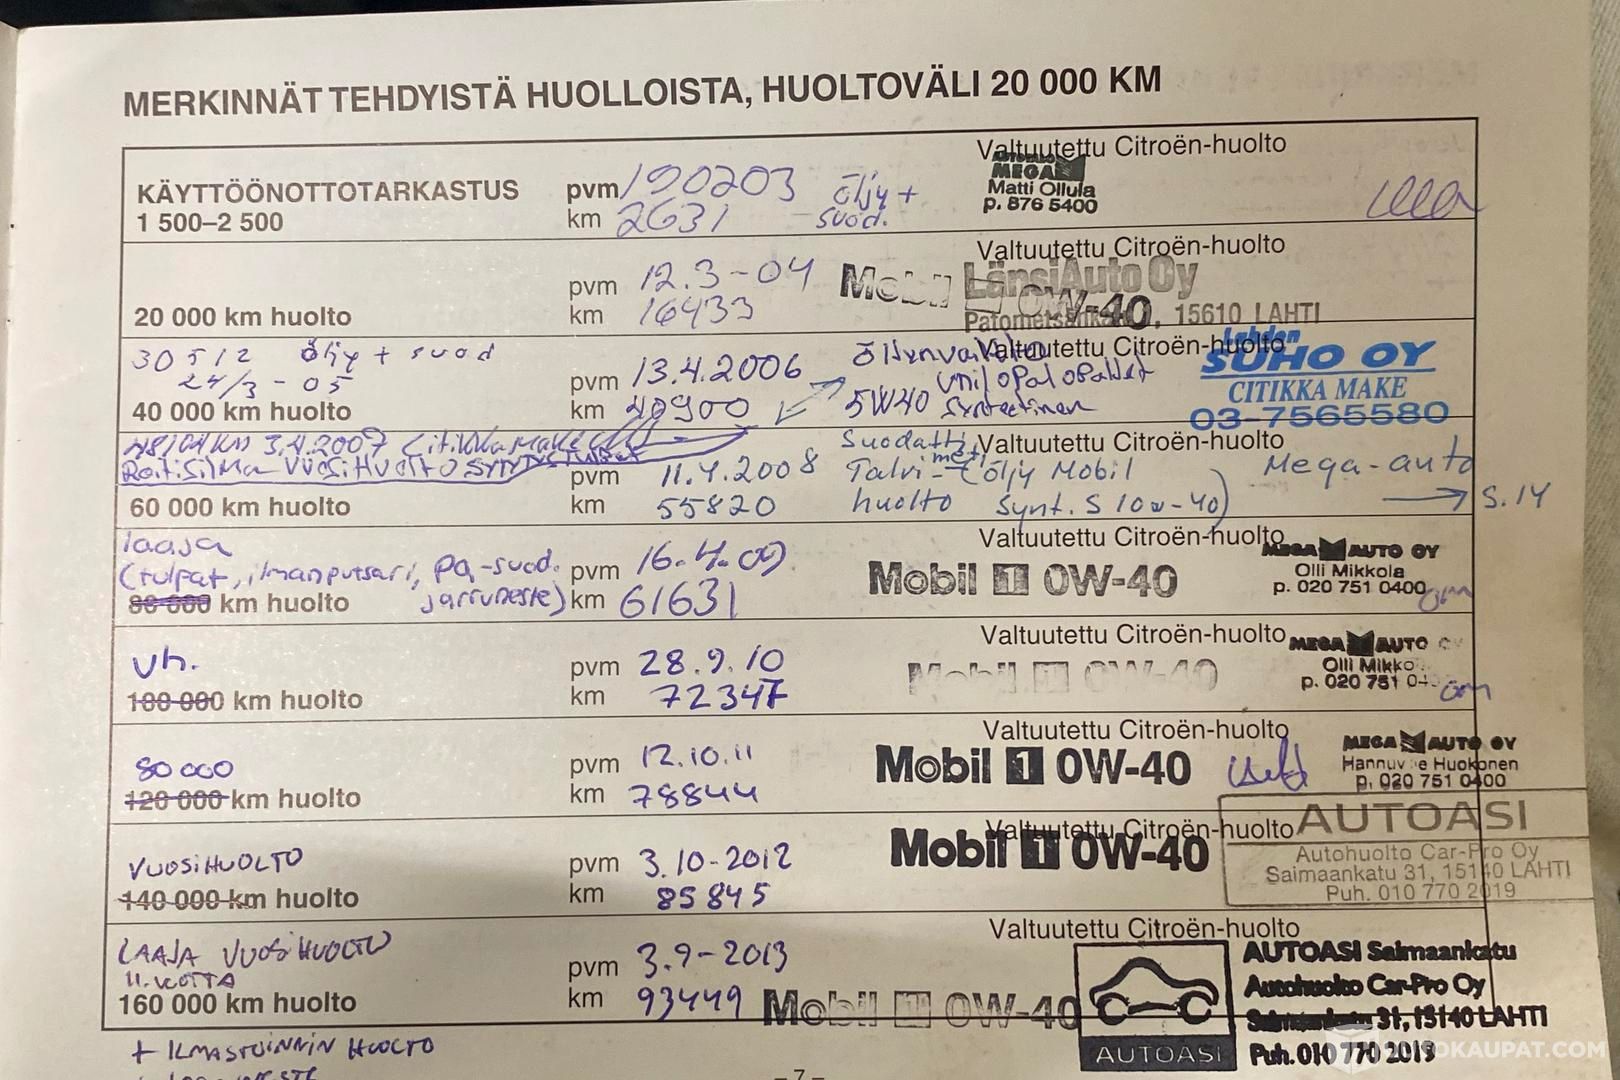 MERKINNÄT TEHDYISTÄ HUOLLOISTA, HUOLTOVÄLI 20 000 KM
Valtuutettu Citroën-huolto
KÄYTTÖÖNOTTOTARKASTUS
1 500–2 500
pvm 190203
km 2631
öljy +
suod.
MEGA
Matti Ollula
p. 876 5400
Valtuutettu Citroën-huolto
20 000 km huolto
pvm 12.3-04
km 16433
Mobil 0W-40
LänsiAuto Oy
15610 LAHTI
Valtuutettu Citroën-huolto
30512 öljy + suod
24/3-05
40 000 km huolto
pvm 13.4.2006
km 40900
Öljynvaihto
5W40
Lahden
SUHO OY
CITIKKA MAKE
03-7565580
Valtuutettu Citroën-huolto
3.4.2007 Citikkamake
Raitisilma vuosihuolto sytytystulpat
60 000 km huolto
pvm 11.4.2008
km 55820
Talvi-
huolto
öljy Mobil
Synt. S 10w-40)
Mega-auto
→ S.14
Valtuutettu Citroën-huolto
laaja
(tulpat, ilmanputsari, pa-suod.
jarruneste)
80 000 km huolto
pvm 16.4.09
km 61631
Mobil 1 0W-40
MEGA AUTO OY
Olli Mikkola
p. 020 751 0400
om
Valtuutettu Citroën-huolto
vh.
100 000 km huolto
pvm 28.9.10
km 72347
Mobil 1 0W-40
MEGA AUTO OY
Olli Mikko
p. 020 751 04
om
Valtuutettu Citroën-huolto
80 000
120 000 km huolto
pvm 12.10.11
km 78844
Mobil 1 0W-40
MEGA AUTO OY
Huokonen
p. 020 751 0400
Valtuutettu Citroën-huolto
VUOSIHUOLTO
140 000 km huolto
pvm 3.10-2012
km 85845
Mobil 1 0W-40
AUTOASI
Autohuolto Car-Pro Oy
Saimaankatu 31, 15140 LAHTI
Puh. 010 770 2019
Valtuutettu Citroën-huolto
LAAJA VUOSIHUOLTO
160 000 km huolto
pvm 3.9-2013
km 93449
Mobil 1 0W-40
AUTOASI
AUTOASI Saimaankatu
Autohuolto Car-Pro Oy
Saimaankatu 31, 15140 LAHTI
Puh. 010 770 2019
+ ILMASTOINNIN HUOLTO
– 7 –
AUTOKAUPAT.COM